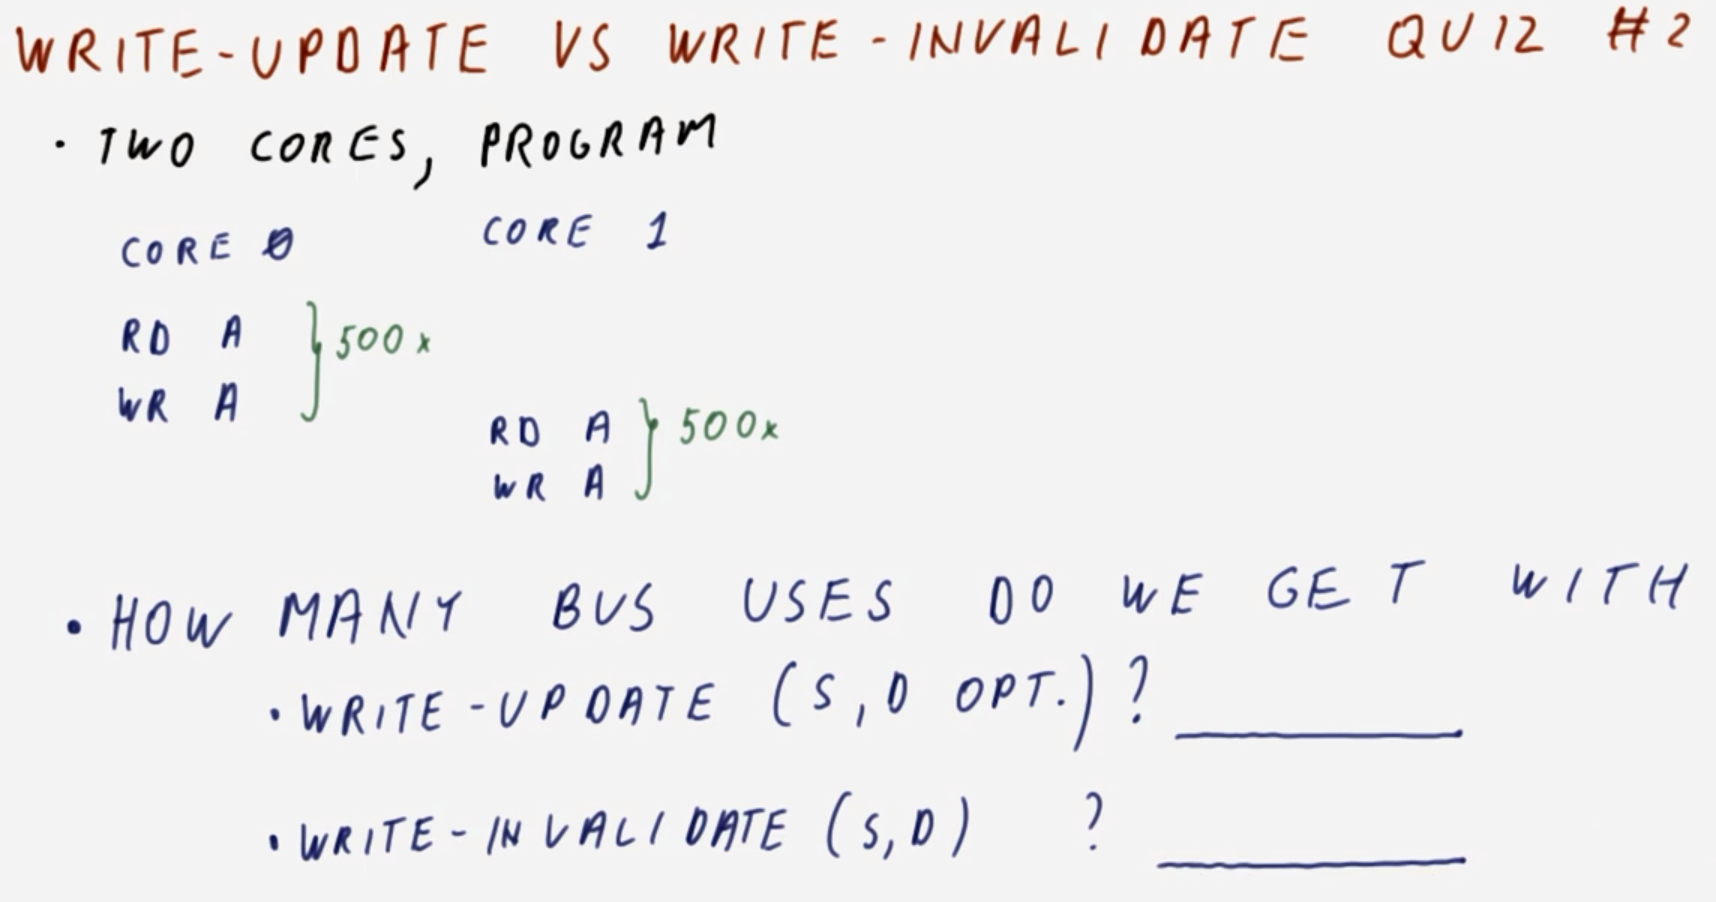 WRITE-UPDATE VS WRITE-INVALIDATE QUIZ #2
• TWO CORES, PROGRAM
CORE 0 CORE 1
RD A } 500x
WR A
RD A } 500x
WR A
• HOW MANY BUS USES DO WE GET WITH
• WRITE-UPDATE (S, D OPT.) ?
• WRITE-INVALIDATE (S, D) ?